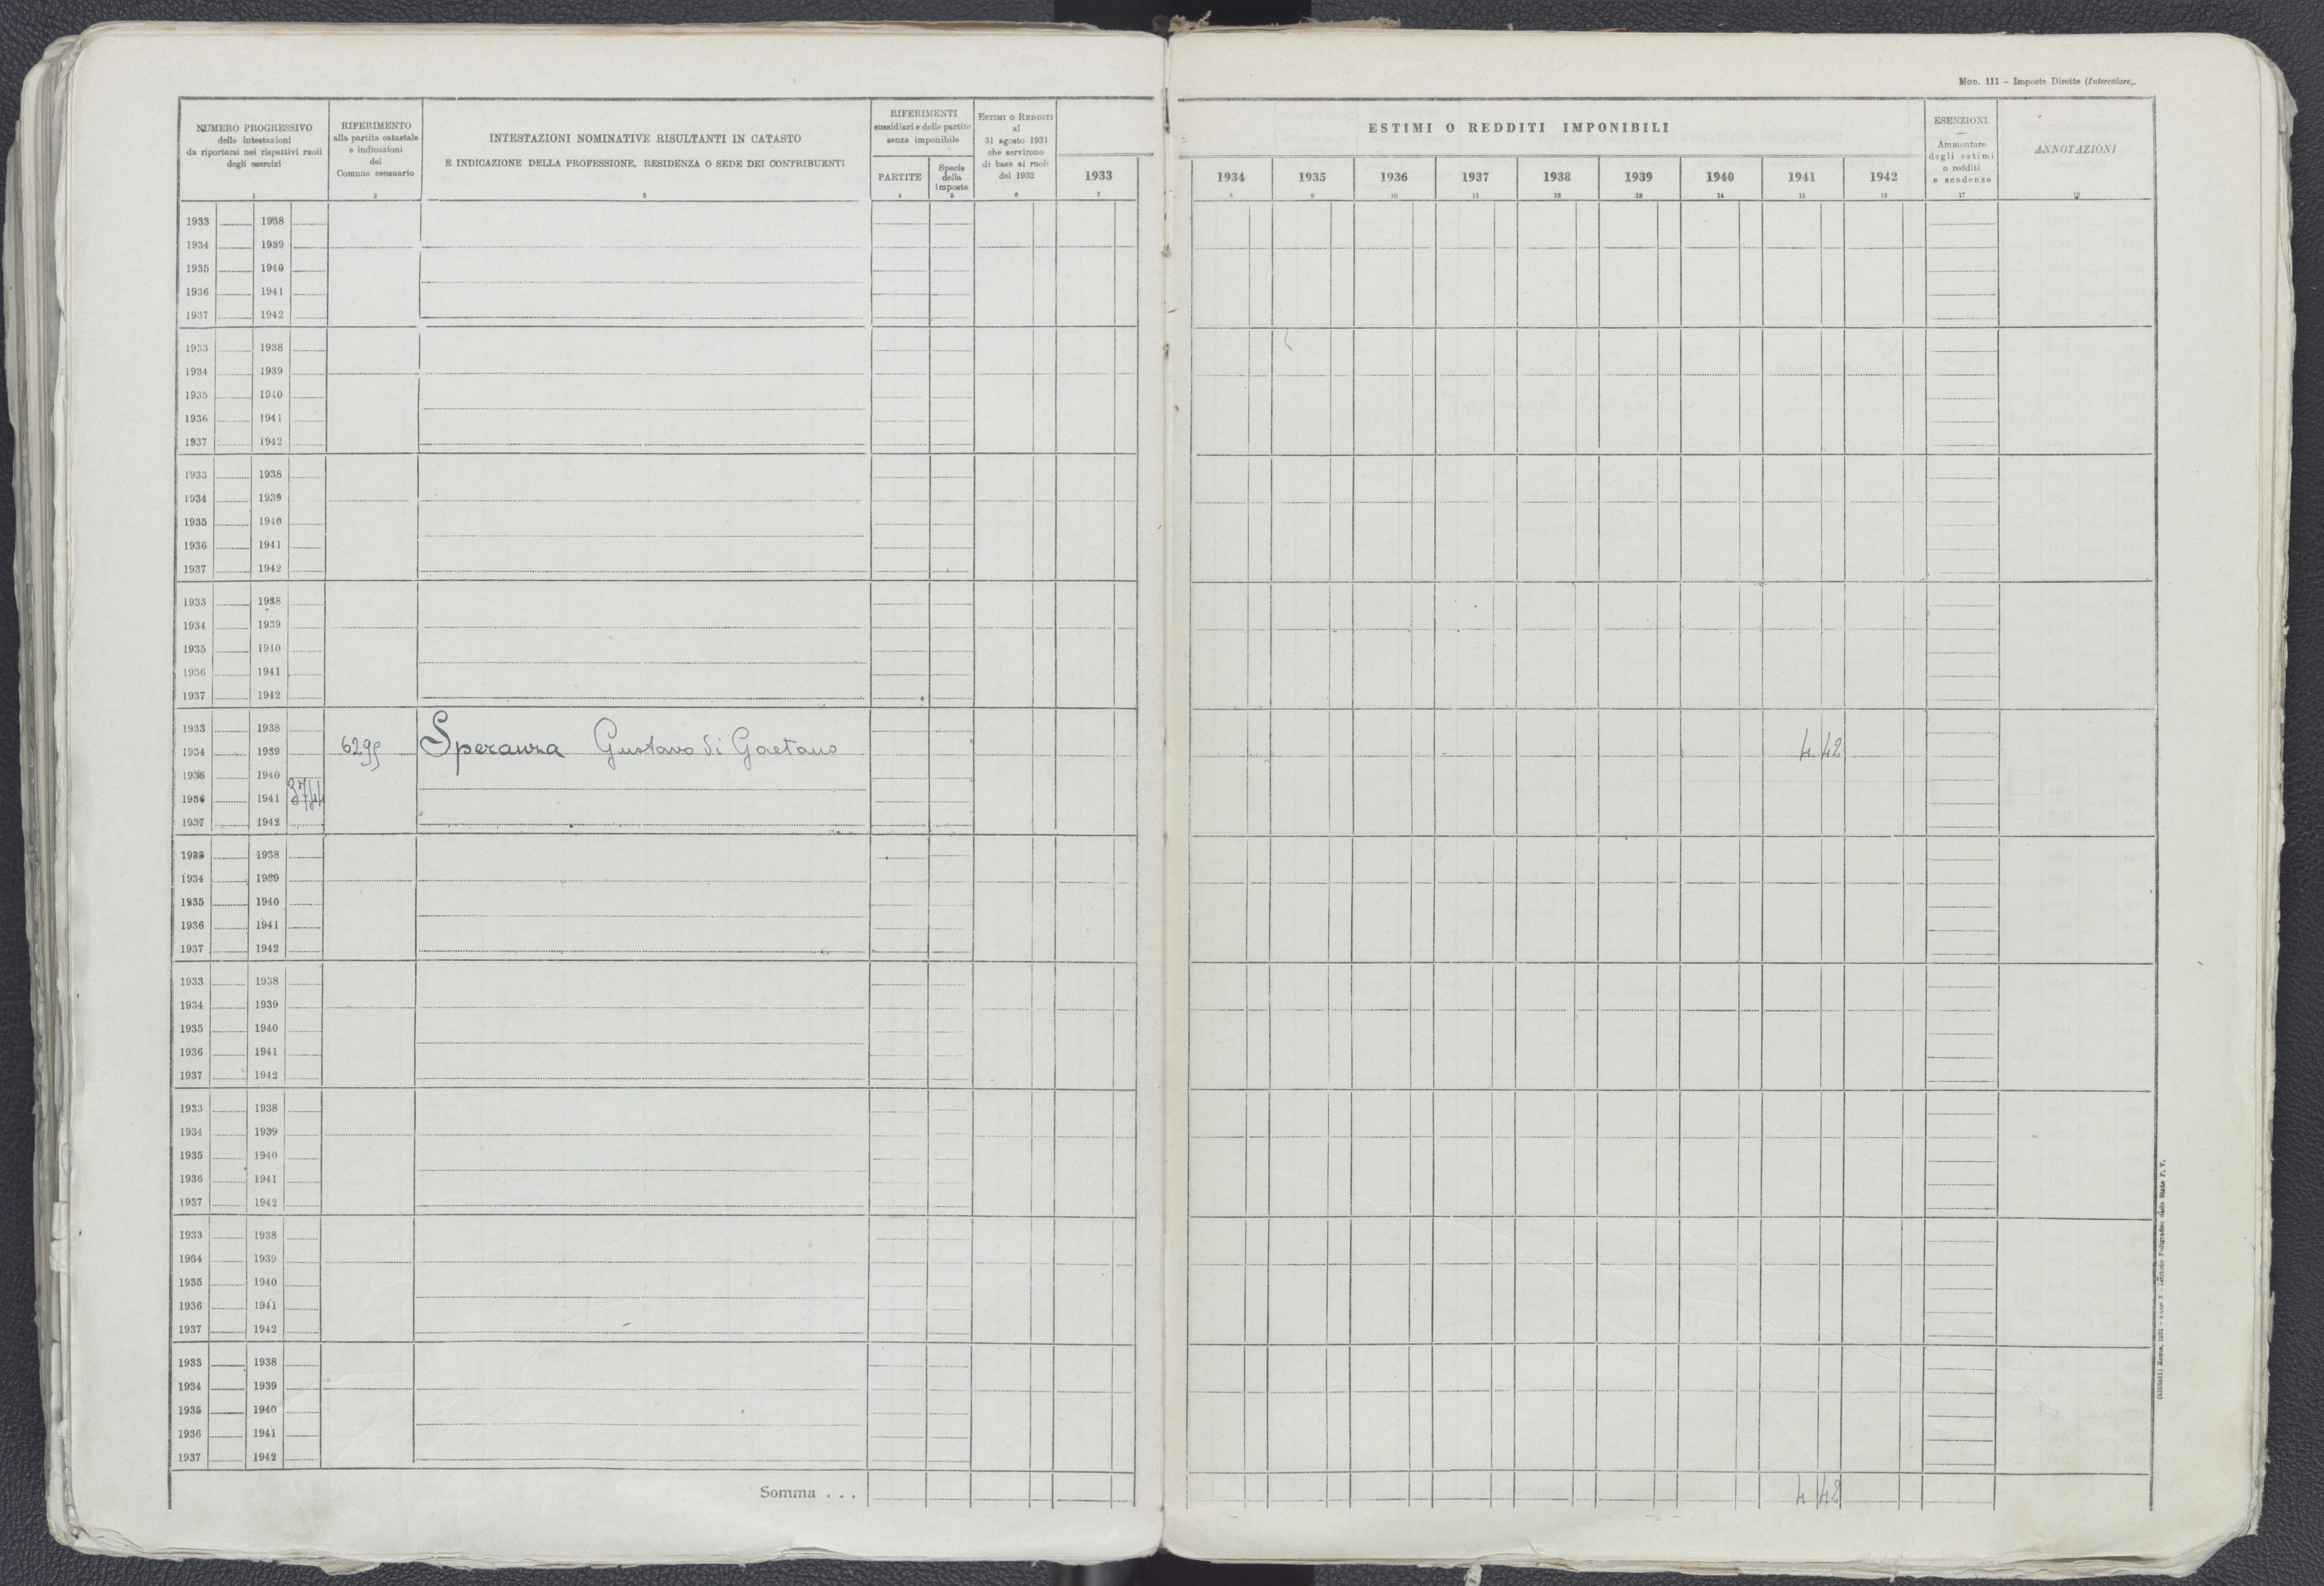 Mod. 111 - Imposte Dirette (Intercalare).
NUMERO PROGRESSIVO
delle intestazioni
da riportarsi nei rispettivi ruoli
degli esercizi
1
RIFERIMENTO
alla partita catastale
e indicazioni
del
Comune censuario
2
INTESTAZIONI NOMINATIVE RISULTANTI IN CATASTO
E INDICAZIONE DELLA PROFESSIONE, RESIDENZA O SEDE DEI CONTRIBUENTI
3
RIFERIMENTI
sussidiari e delle partite
senza imponibile
PARTITE
4
Specie
della
imposta
5
ESTIMI O REDDITI
al
31 agosto 1931
che servirono
di base ai ruoli
del 1932
6
1933
7
ESTIMI O REDDITI IMPONIBILI
1934 1935 1936 1937 1938 1939 1940 1941 1942
8 9 10 11 12 13 14 15 16
ESENZIONI
Ammontare
degli estimi
o redditi
e scadenze
17
ANNOTAZIONI
18
1933 1938
1934 1939
1935 1940
1936 1941
1937 1942
1933 1938
1934 1939
1935 1940
1936 1941
1937 1942
1933 1938
1934 1939
1935 1940
1936 1941
1937 1942
1933 1938
1934 1939
1935 1940
1936 1941
1937 1942
1933 1938
1934 1939 6299 Speranza Gustavo di Gaetano 4 42
1935 1940
1936 1941 3744
1937 1942
1933 1938
1934 1939
1935 1940
1936 1941
1937 1942
1933 1938
1934 1939
1935 1940
1936 1941
1937 1942
1933 1938
1934 1939
1935 1940
1936 1941
1937 1942
1933 1938
1934 1939
1935 1940
1936 1941
1937 1942
1933 1938
1934 1939
1935 1940
1936 1941
1937 1942
Somma . . . 4 42